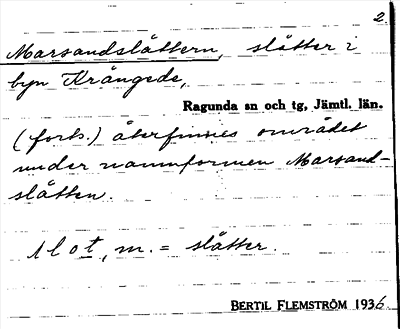 2.
Marsandslåttern, slåtter i
byn Krångede,
Ragunda sn och tg, Jämtl. län.
(forts.) återfinnes området
under namnformen Marsand-
slåtten.
slot, m. = slåtter.
BERTIL FLEMSTRÖM 1936.